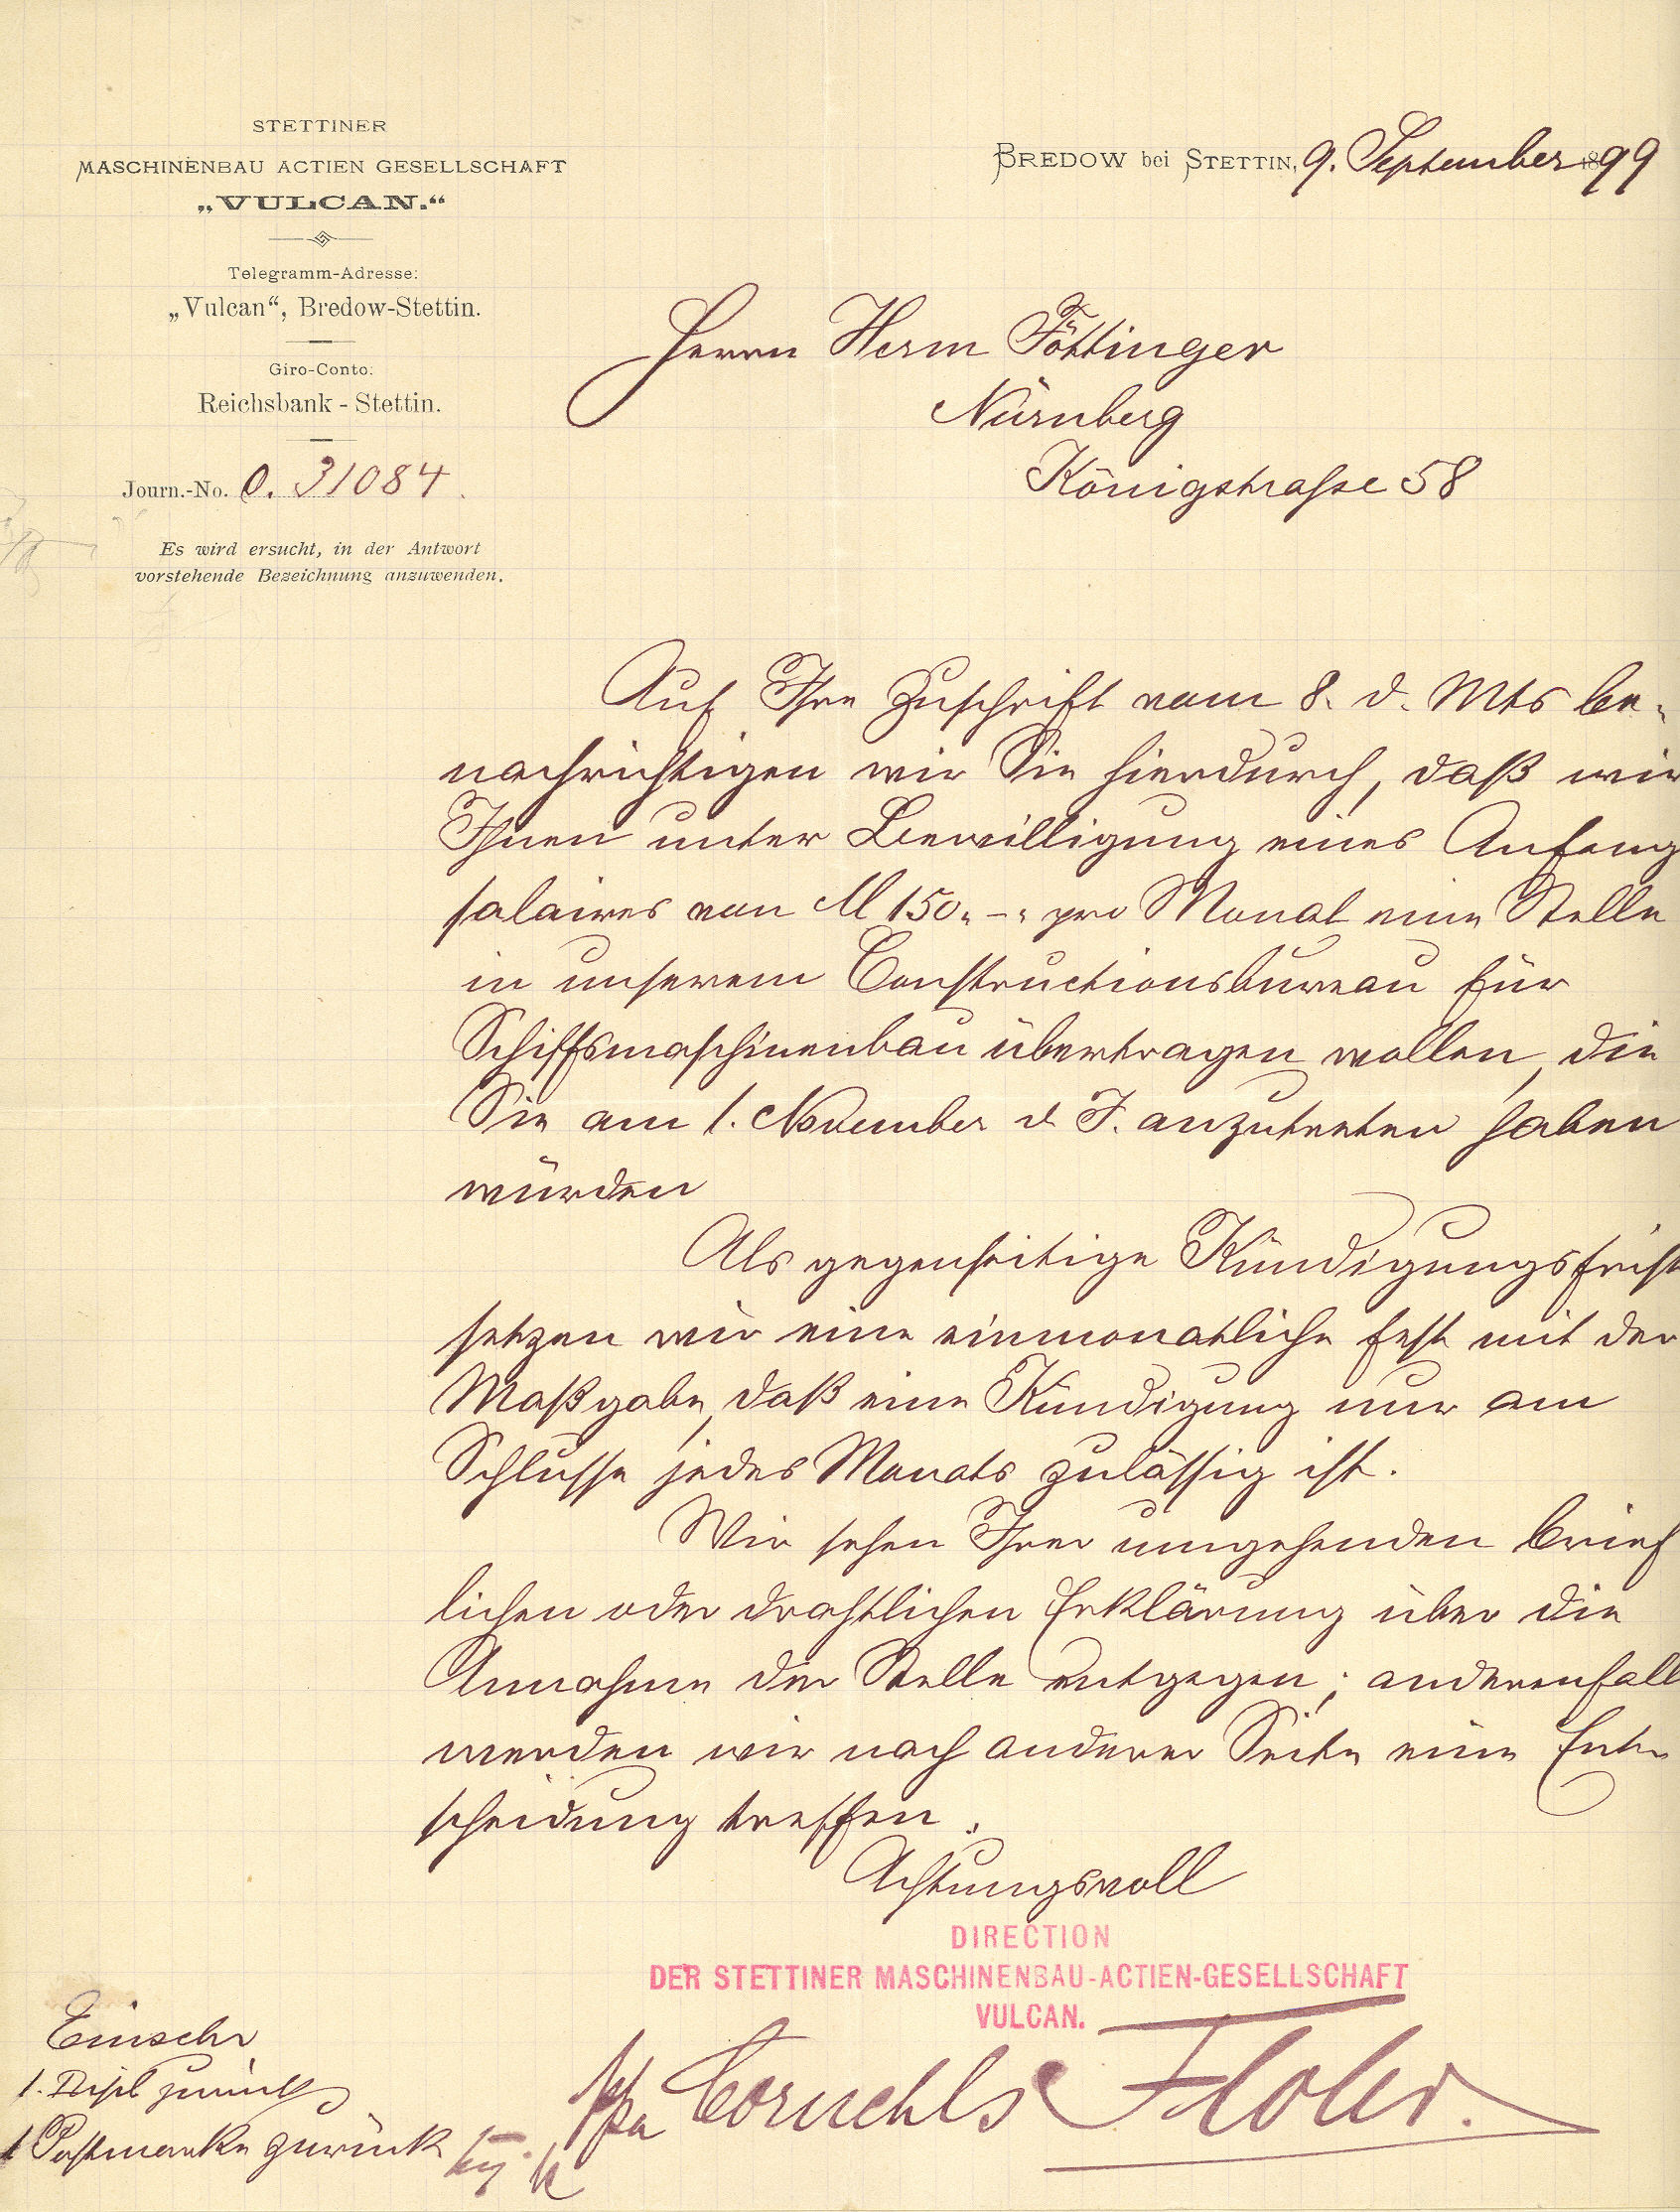 STETTINER
MASCHINENBAU ACTIEN GESELLSCHAFT
„VULCAN.“
Telegramm-Adresse:
„Vulcan“, Bredow-Stettin.
Giro-Conto:
Reichsbank - Stettin.
Journ.-No. O. 31084.
Es wird ersucht, in der Antwort
vorstehende Bezeichnung anzuwenden.
BREDOW bei STETTIN, 9. September 1899
Herrn Herm Föttinger
Nürnberg
Königstrasse 58
Auf Ihre Zuschrift vom 8. d. Mts be-
nachrichtigen wir Sie hierdurch, daß wir
Ihnen unter Bewilligung eines Anfang
salaires von M 150.-. pro Monat eine Stelle
in unserem Constructionsbureau für
Schiffsmaschinenbau übertragen wollen, die
Sie am 1. November d. J. anzutreten haben
würden
Als gegenseitige Kündigungsfrist
setzen wir eine einmonatliche fest mit der
Maßgabe, daß eine Kündigung nur am
Schlusse jedes Monats zulässig ist.
Wir sehen Ihrer umgehenden brief
lichen oder drahtlichen Erklärung über die
Annahme der Stelle entgegen; anderenfall
werden wir nach anderer Seite eine Ent-
scheidung treffen.
Achtungsvoll
DIRECTION
DER STETTINER MASCHINENBAU-ACTIEN-GESELLSCHAFT
VULCAN.
ppa
Einschr
1. Dipl zurück
1 Postmarke zurück